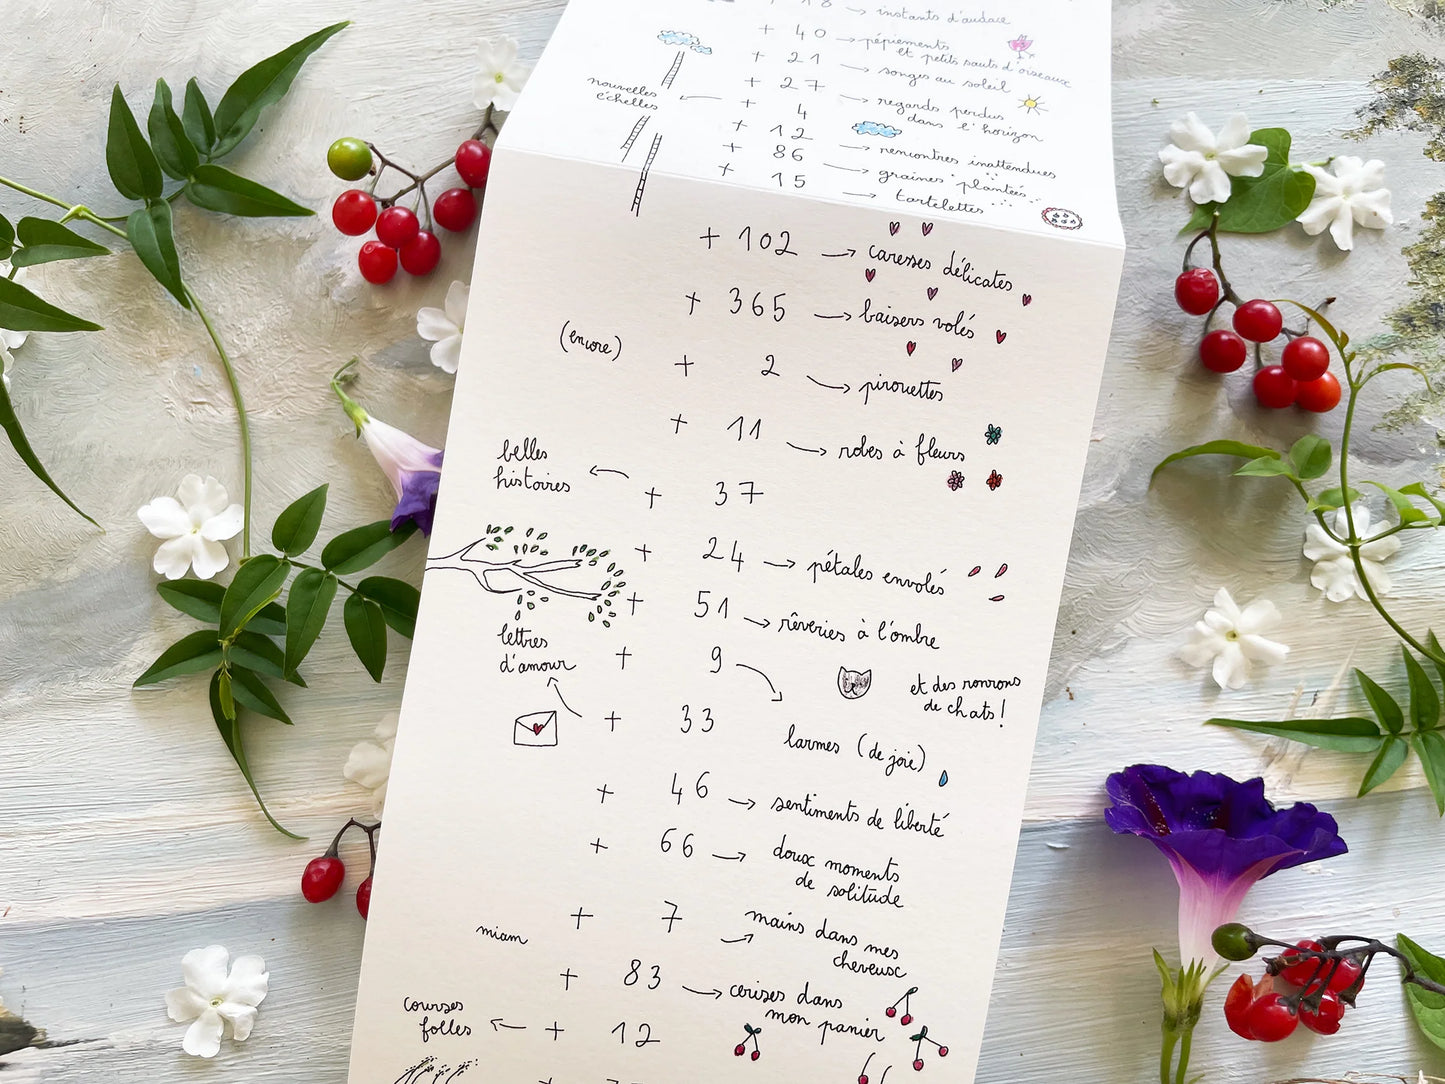 18 → instants d'audace
+ 40 → pépiements
et petits sauts d'oiseaux
+ 21 → songes au soleil
+ 27 → regards perdus
dans l'horizon
nouvelles
échelles ← + 4
+ 12 → rencontres inattendues
+ 86 → graines plantées
+ 15 → tartelettes
+ 102 → caresses délicates
+ 365 → baisers volés
(encore) + 2 → pirouettes
+ 11 → robes à fleurs
belles
histoires ← + 37
+ 24 → pétales envolés
+ 51 → rêveries à l'ombre
+ 9 → larmes (de joie)
et des ronrons
de chats !
lettres
d'amour ← + 33
+ 46 → sentiments de liberté
+ 66 → doux moments
de solitude
+ 7 → mains dans mes
cheveux
miam
+ 83 → cerises dans
mon panier
courses
folles ← + 12